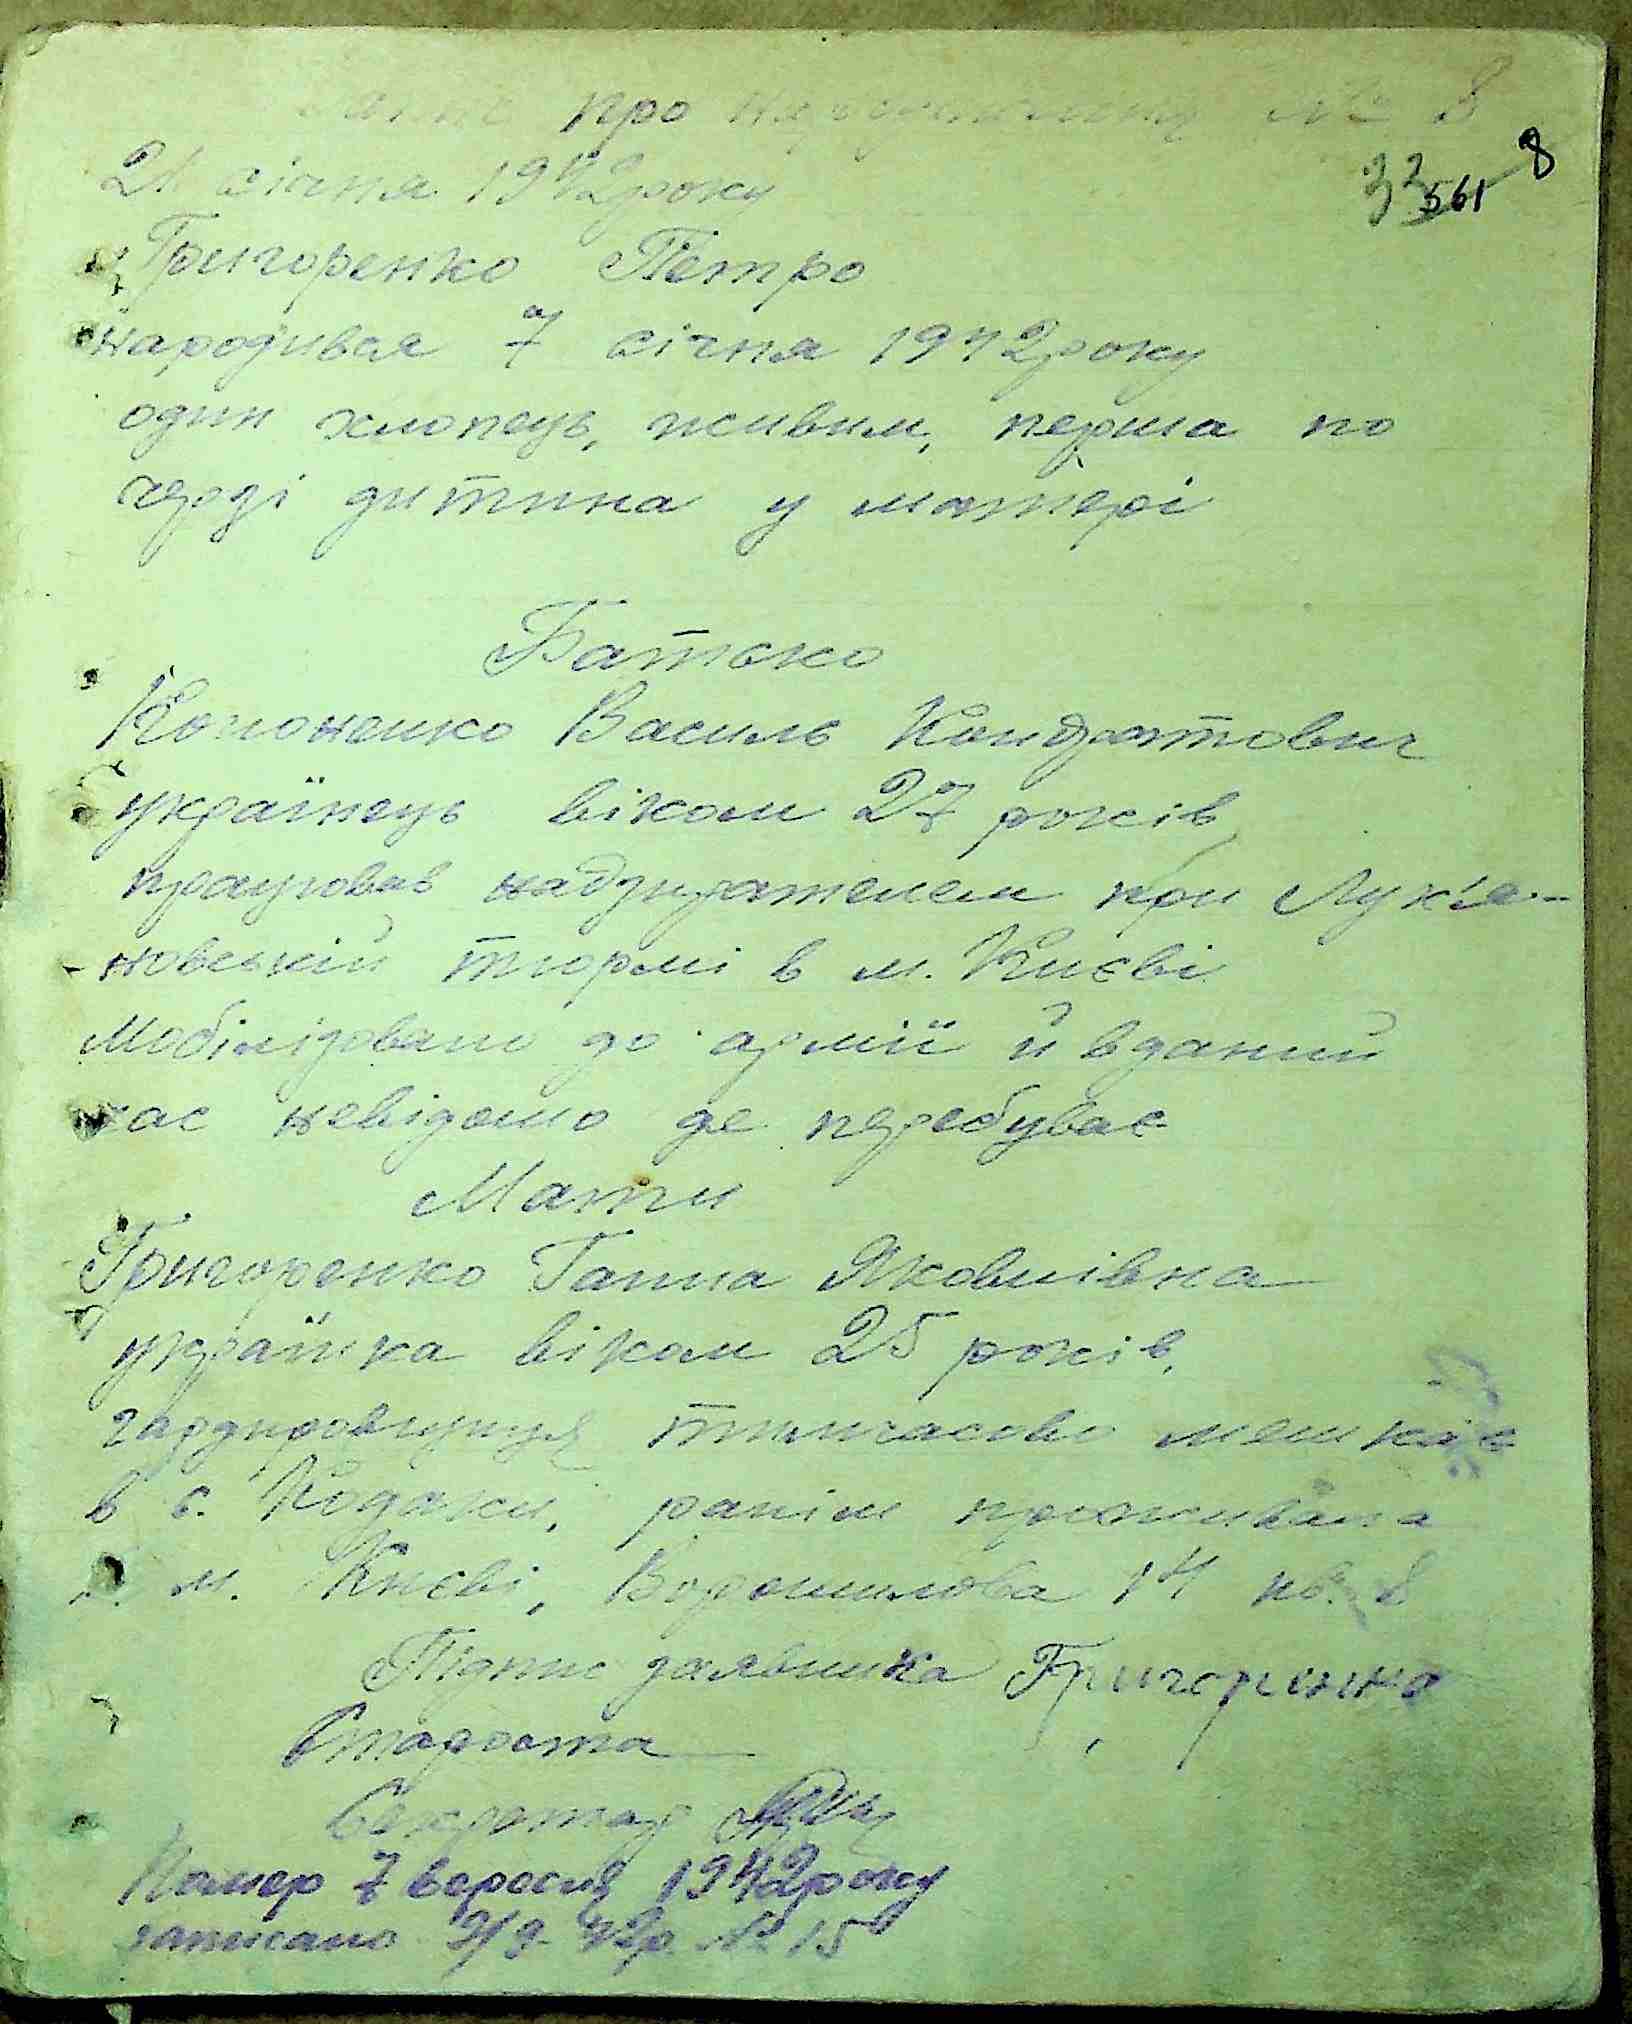 Запис про народження № 8
21 січня 1942 року
8
33
561
Григоренко Петро
народився 7 січня 1942 року
один хлопець, живим, перша по
черзі дитина у матері
Батько
Кононенко Василь Кондратович
українець віком 27 років,
працював надзирателем при Лук'я-
новській тюрмі в м. Києві
Мобілізовано до армії й в даний
час невідомо де перебуває
Мати
Григоренко Ганна Яковлівна
українка віком 25 років,
гардировщиця тимчасово мешкає
в с. Кодаки, раніш проживала
в м. Києві, Ворошилова 14 кв. 8
Підпис заявника Григоренко
Староста
Секретар
Помер 7 вересня 1942 року
записано 7/9-42р. № 15